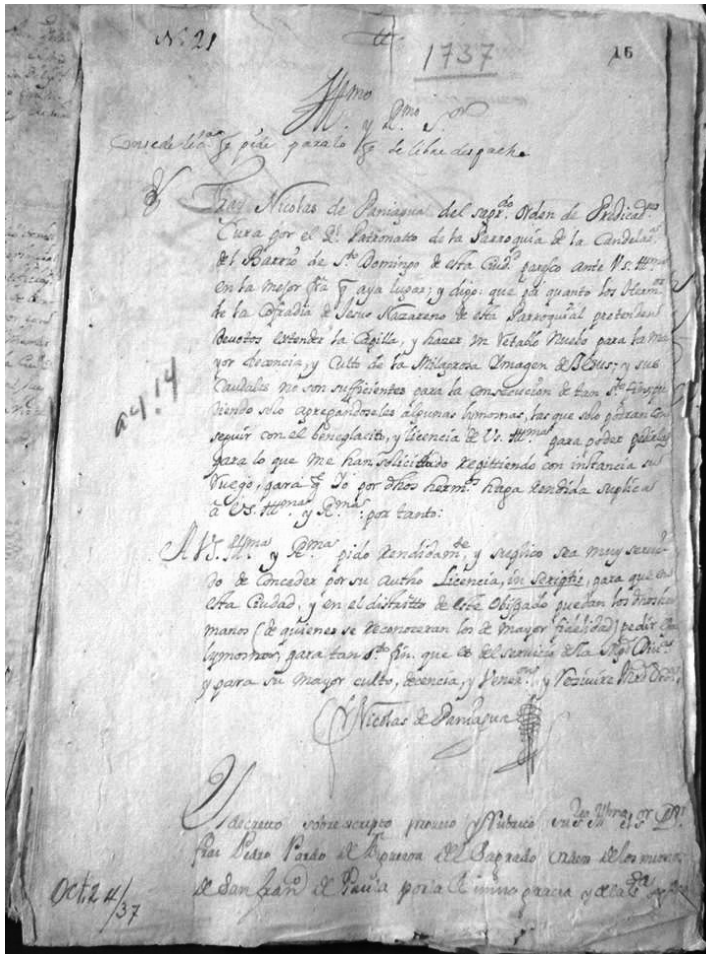 N. 21
1737
16
Yll.mo y R.mo S.or
Concedese lic.a q pide para lo q se libre despacho
Fray Nicolas de Paniagua del sagr.do Orden de Predicad.res
Cura por el R.l Patronatto de la Parroquia de la Candelar.a
del Barrio de S.to Domingo de esta Ciud.d paresco ante V.s. Yll.mas
en la mejor f.ma q aya lugar; y digo: que p.r quanto los Herm.os
de la Cofradia de Jesus Nazareno de esta Parroquial pretenden
devotos extender la Capilla, y hazer un Retablo Nuebo para la ma
yor decencia, y Culto de la Milagrosa Ymagen de Jesus; y sus
Caudales no son sufficientes para la consecucion de tan S.to fin
diendo solo agregandoseles algunas limosnas, las que solo podran con
seguir con el beneplacito, y licencia de V.s. Yll.mas para poder pedirlas
para lo que me han solicittado repittiendo con instancia su
ruego, para q Yo por dhos herm.s haga rendida suplica
a V.s. Yll.mas y R.mas por tanto:
A V.s. Yll.mas y R.mas pido rendidam.te, y suplico sea muy servi
do de Conceder por su autho Licencia, in scriptis, para que en
esta Ciudad, y en el distritto de este Obispado puedan los dhos her
manos (de quienes se reconoceran los de mayor fidelidad) pedir
lymosnas, para tan S.to fin, que es del servicio de la Mag.d Div.a
y para su mayor culto, decencia, y Vener.on, y Resivire Mrd
Nicolas de Paniagua
ay! 4
Y decretto sobrescripto proveyo y Rubrico su S.a el S.or D.n
frai Pedro Pardo de Figueroa del Sagrado orden de los minimos
de San fran.co de Paula por la Divina gracia y de la S.ta
Oct. 24/37